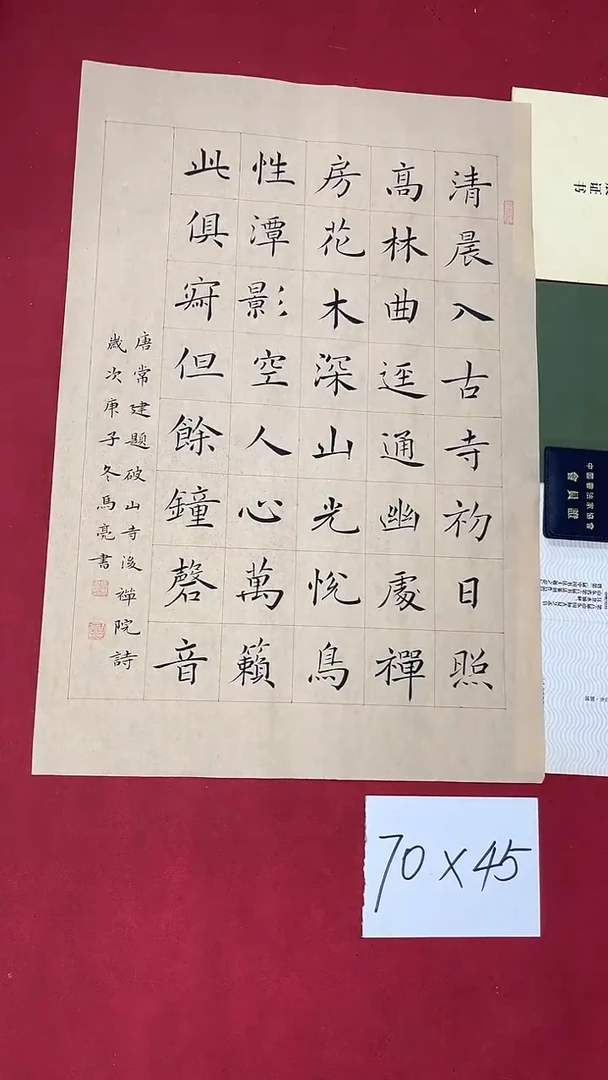 清晨入古寺初日照
高林曲逕通幽處禪
房花木深山光悅鳥
性潭影空人心萬籟
此俱寂但餘鐘磬音
唐常建題破山寺後禪院詩
歲次庚子冬馬亮書
证书
中國書法家協會
會員證
70×45